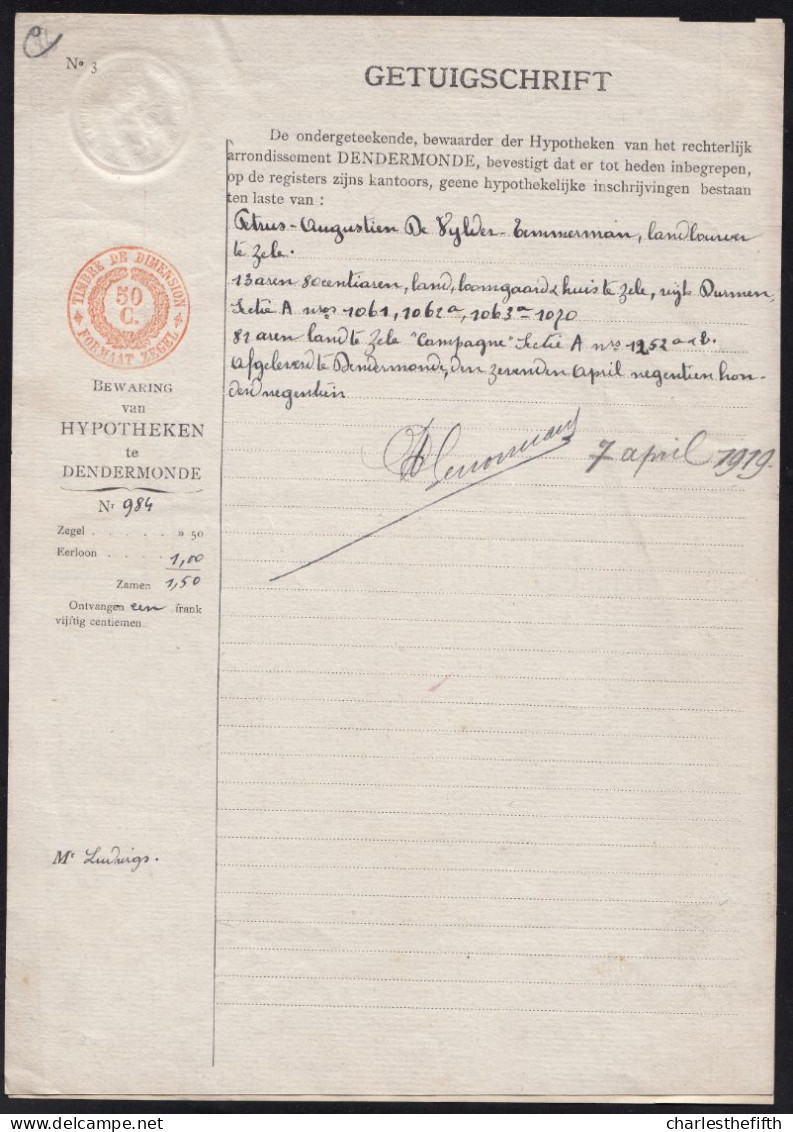 Nº 3
GETUIGSCHRIFT
De ondergeteekende, bewaarder der Hypotheken van het rechterlijk
arrondissement DENDERMONDE, bevestigt dat er tot heden inbegrepen,
op de registers zijns kantoors, geene hypothekelijke inschrijvingen bestaan
ten laste van :
Petrus-Augustien De Vylder-Temmerman, landbouwer
te Zele.
13 aren 80 centiaren, land, boomgaard & huis te Zele, wijk Durmen,
Sectie A nrs 1061, 1062a, 1063a 1070
82 aren land te Zele "Campagne" Sectie A nrs 1252 a & b.
Afgeleverd te Dendermonde, den zevenden April negentien hon-
derd negentien
7 april 1919.
TIMBRE DE DIMENSION
50
C.
FORMAAT ZEGEL
BEWARING
van
HYPOTHEKEN
te
DENDERMONDE
Nr 984
Zegel . . . . . . » 50
Eerloon . . . . 1,00
Zamen 1,50
Ontvangen een frank
vijftig centiemen
Mr Ludwigs.
charlesthefifth